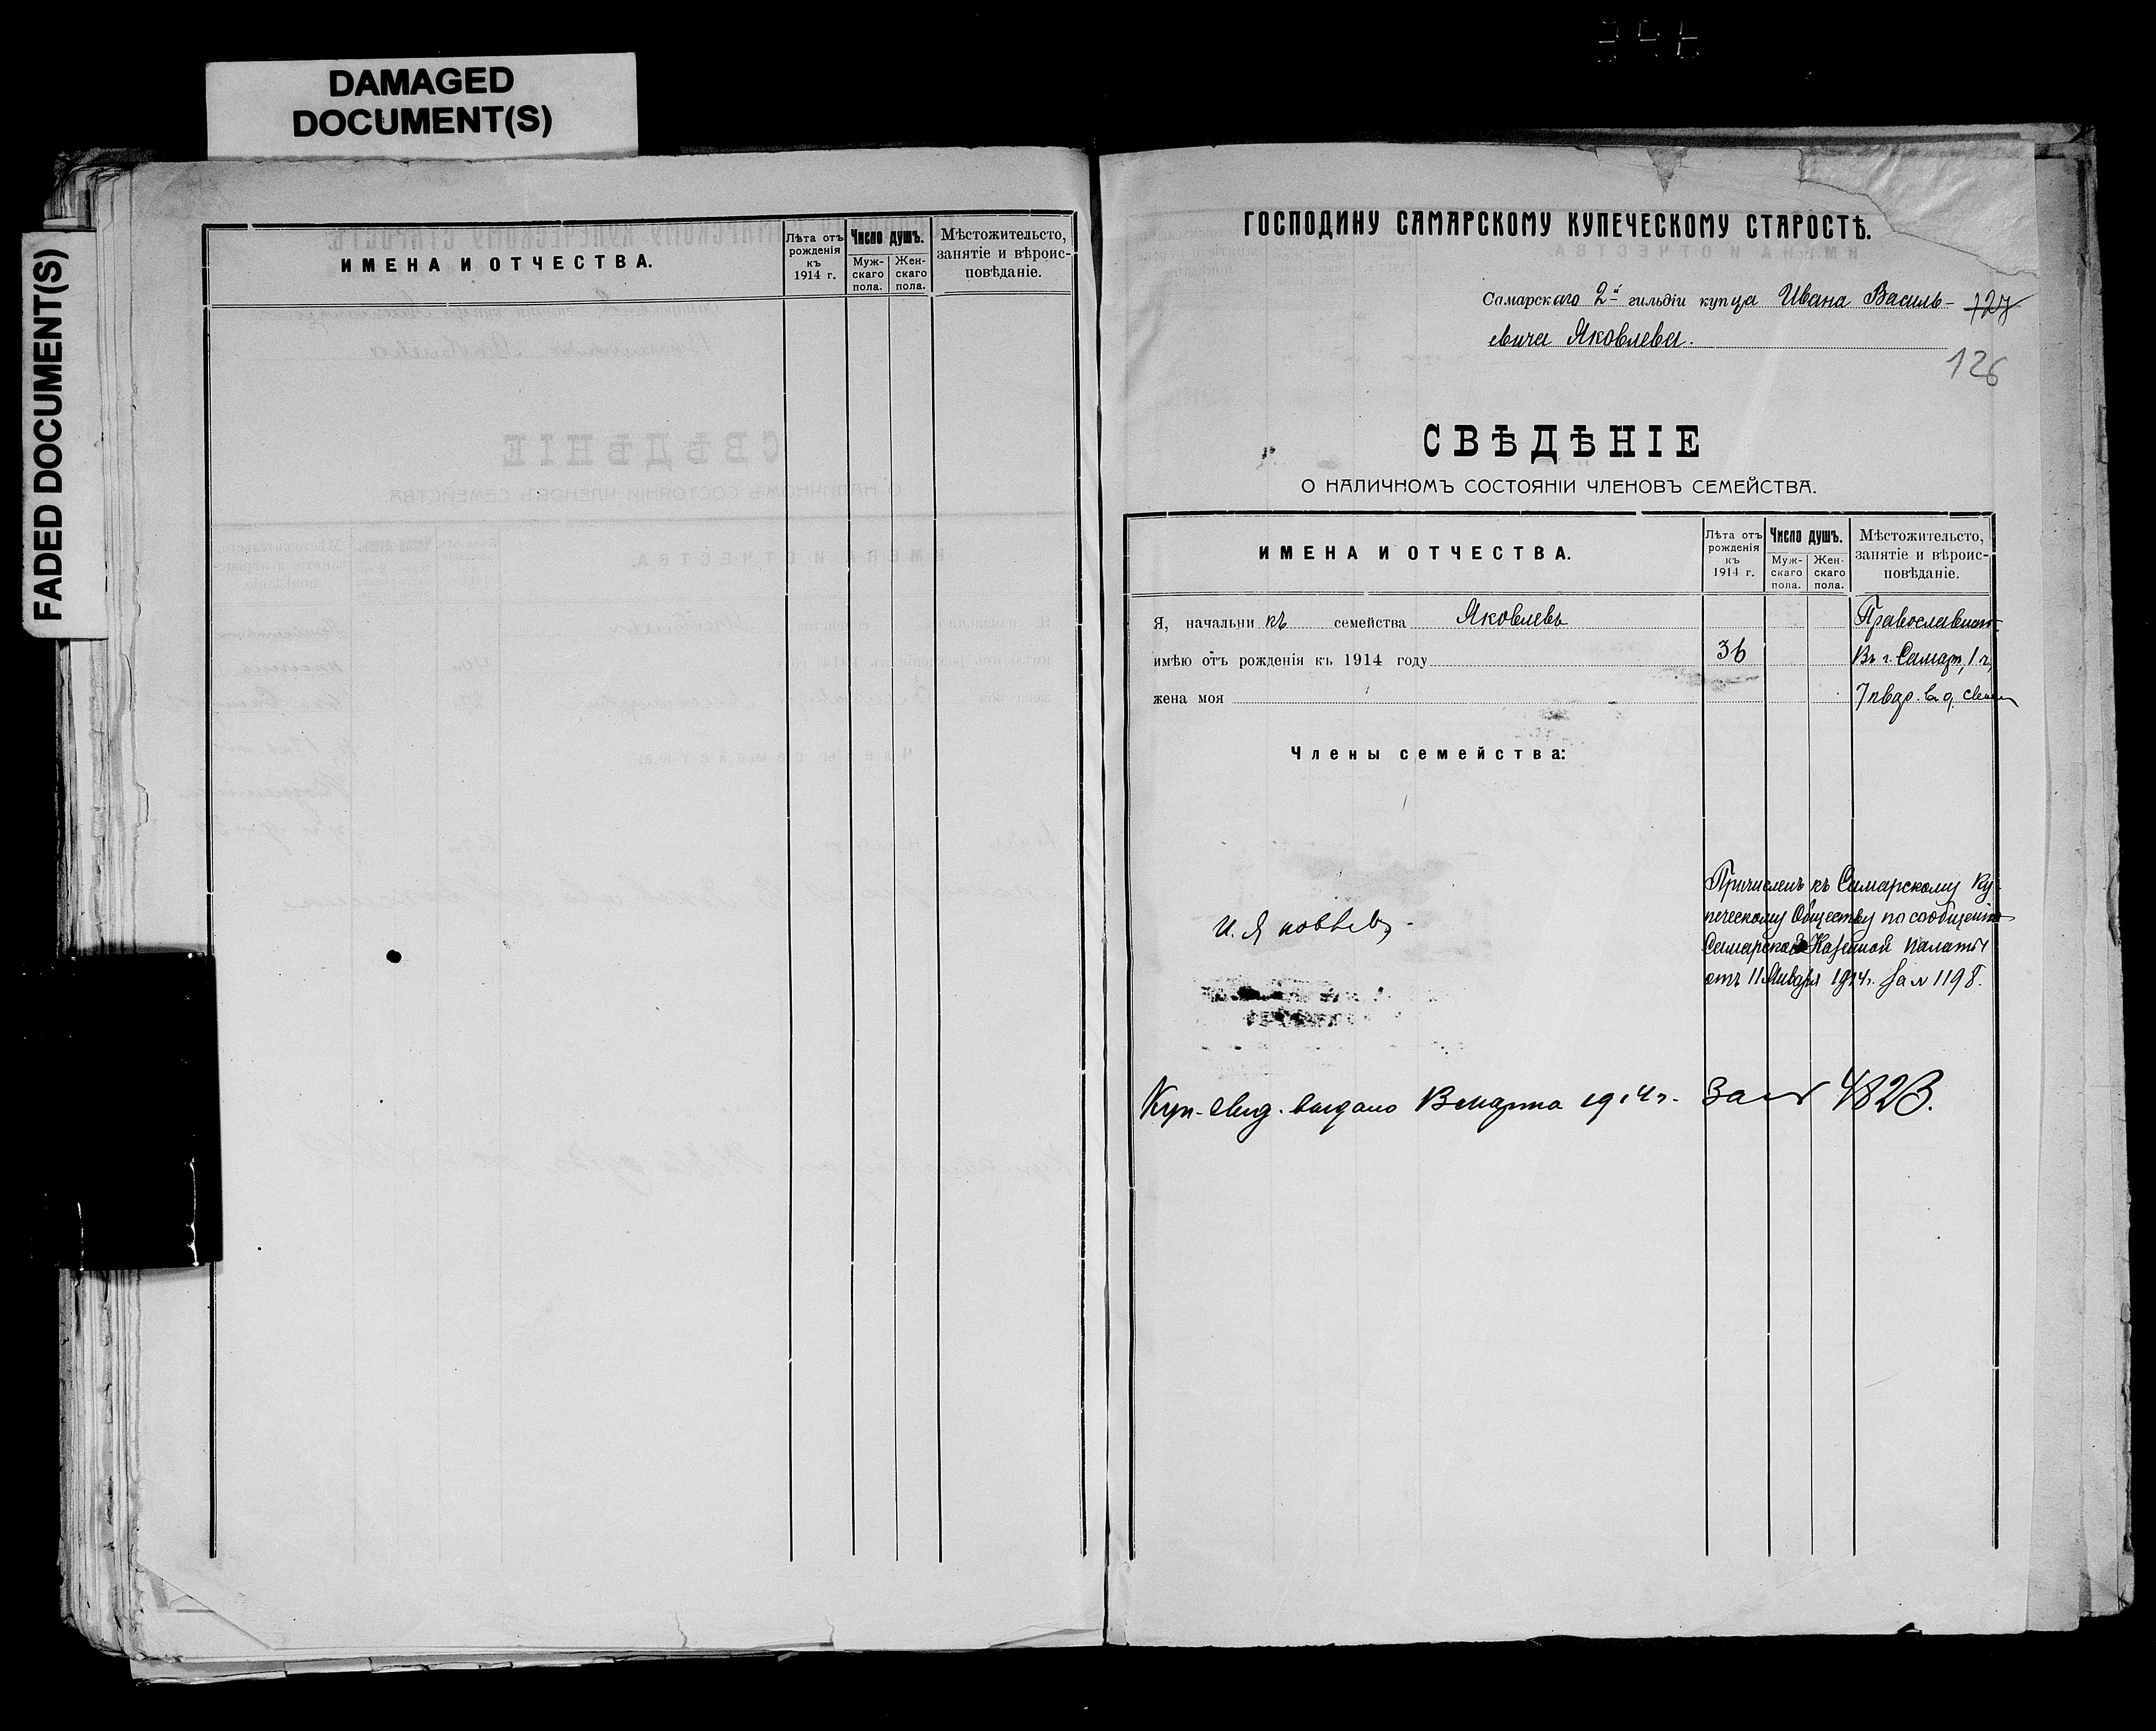 DAMAGED
DOCUMENT(S)
FADED DOCUMENT(S)
ИМЕНА И ОТЧЕСТВА.
Лѣта отъ рожденія къ 1914 г.
Число душъ.
Мужскаго пола.
Женскаго пола.
Мѣстожительсто, занятіе и вѣроисповѣданіе.
ГОСПОДИНУ САМАРСКОМУ КУПЕЧЕСКОМУ СТАРОСТѢ.
Самарскаго 2й гильдіи купца Ивана Василь-
евича Яковлева.
127
126
СВѢДѢНІЕ
О НАЛИЧНОМЪ СОСТОЯНІИ ЧЛЕНОВЪ СЕМЕЙСТВА.
ИМЕНА И ОТЧЕСТВА.
Лѣта отъ рожденія къ 1914 г.
Число душъ.
Мужскаго пола.
Женскаго пола.
Мѣстожительсто, занятіе и вѣроисповѣданіе.
Я, начальникъ семейства Яковлевъ
Православнаго
имѣю отъ рожденія къ 1914 году 36
Въ г. Самарѣ, 1 ч,
жена моя
7 квар. въ д.
Члены семейства:
Причисленъ къ Самарскому Ку-
печескому Обществу по сообщенію
Самарской Казенной Палаты
отъ 11 Января 1914 г. за № 1198.
И. Яковлевъ
Куп. свид. выдано 13 марта 1914 г. за № 4823.